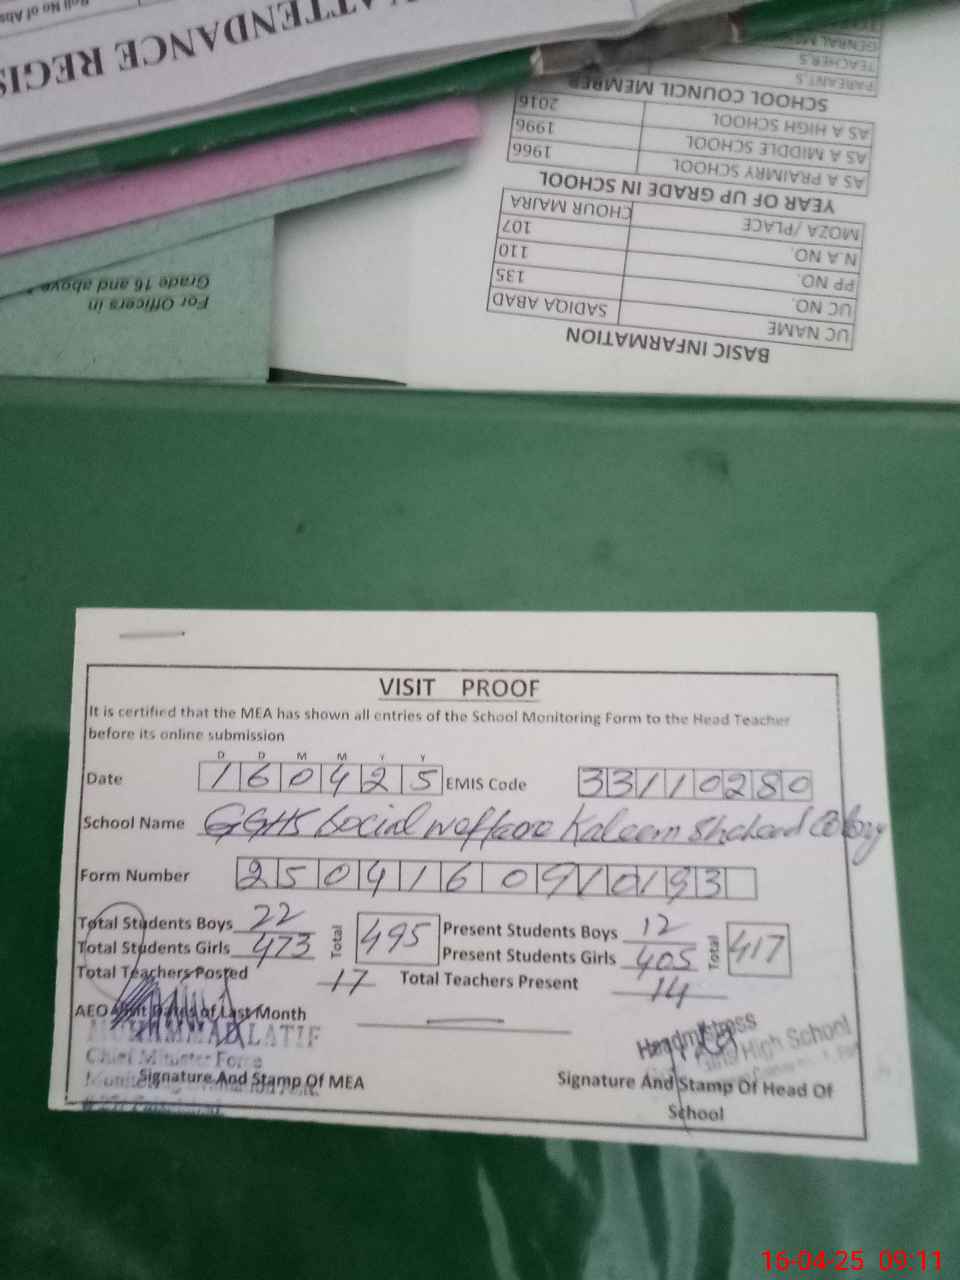 Roll No of Abs
ATTENDANCE REGIS
For Officers in
Grade 16 and above
BASIC INFARMATION
UC NAME SADIQA ABAD
UC NO. 135
PP NO. 110
N.A NO. 107
MOZA /PLACE CHOUR MAJRA
YEAR OF UP GRADE IN SCHOOL
AS A PRAIMRY SCHOOL 1966
AS A MIDDLE SCHOOL 1996
AS A HIGH SCHOOL 2016
SCHOOL COUNCIL MEMBER
PAREANT,S
TEACHER,S
GENRAL
VISIT PROOF
It is certified that the MEA has shown all entries of the School Monitoring Form to the Head Teacher
before its online submission
D D M M Y Y
Date 160425 EMIS Code 33110280
School Name GGHS Social welfare Kaleem Shaheed Colony
Form Number 2504160910193
Total Students Boys 22 Total 495 Present Students Boys 12 Total 417
Total Students Girls 473 Present Students Girls 405
Total Teachers Posted 17 Total Teachers Present 14
AEO Visit Dates of Last Month
MUHAMMAD LATIF
Chief Minister Force
Signature And Stamp Of MEA
Headmistress
High School
Signature And Stamp Of Head Of
School
16-04-25 09:11